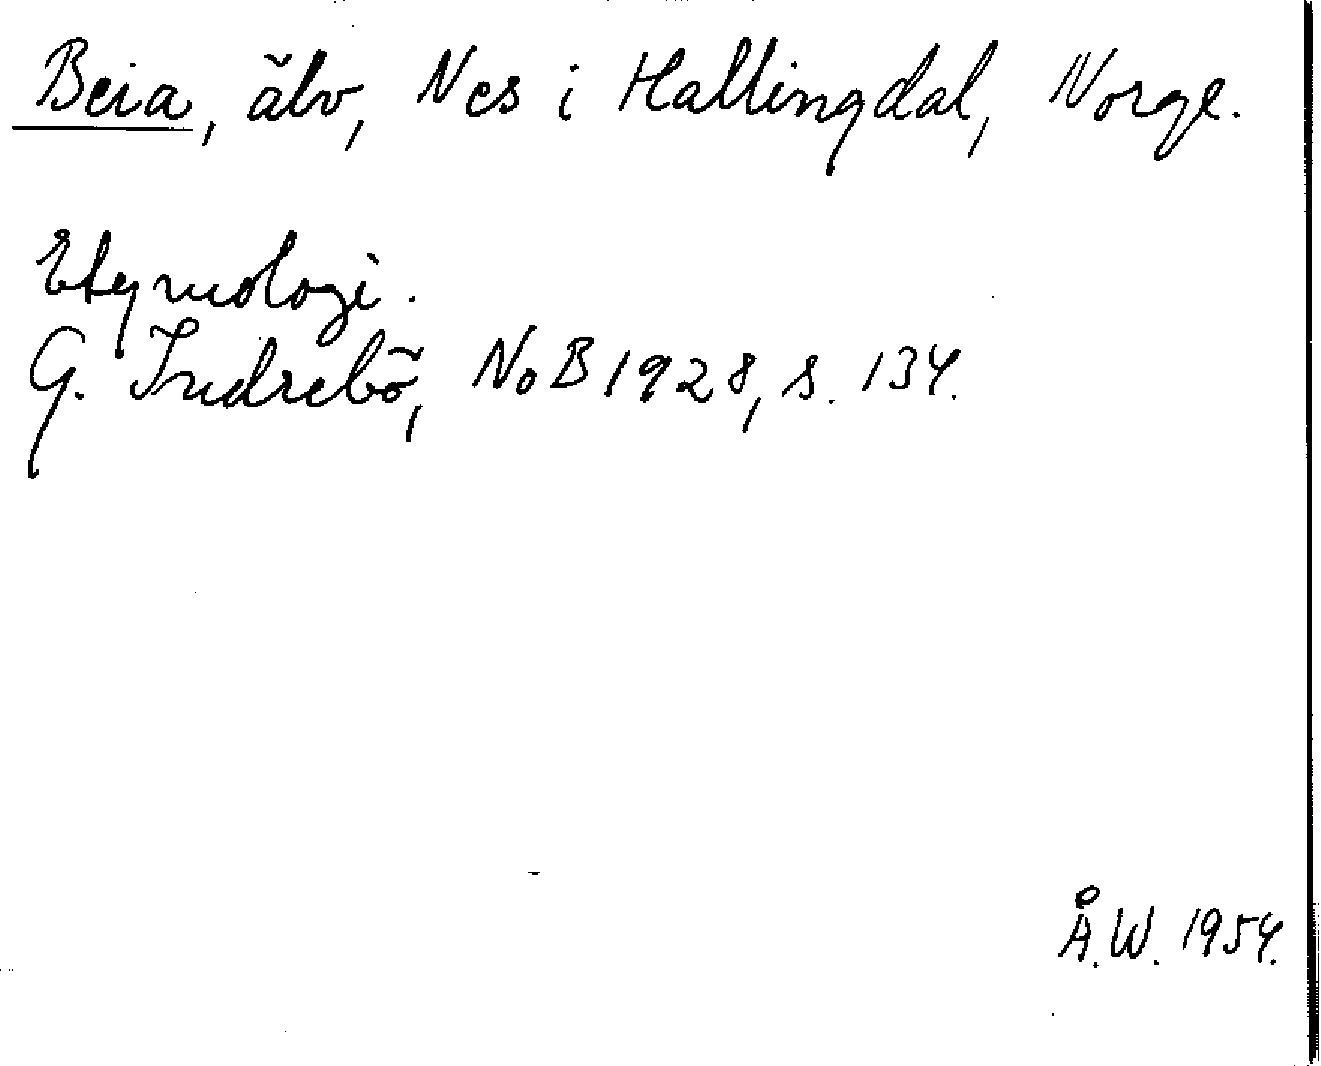 Beia, älv, Nes i Hallingdal, Norge.
Etymologi.
G. Indrebö, NoB 1928, s. 134.
Å.W. 1954.